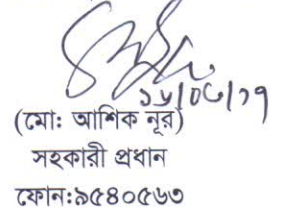 ১৮/০৫/১৭
(মো: আশিক নূর)
সহকারী প্রধান
ফোন:৯৫৪০৫৬৩